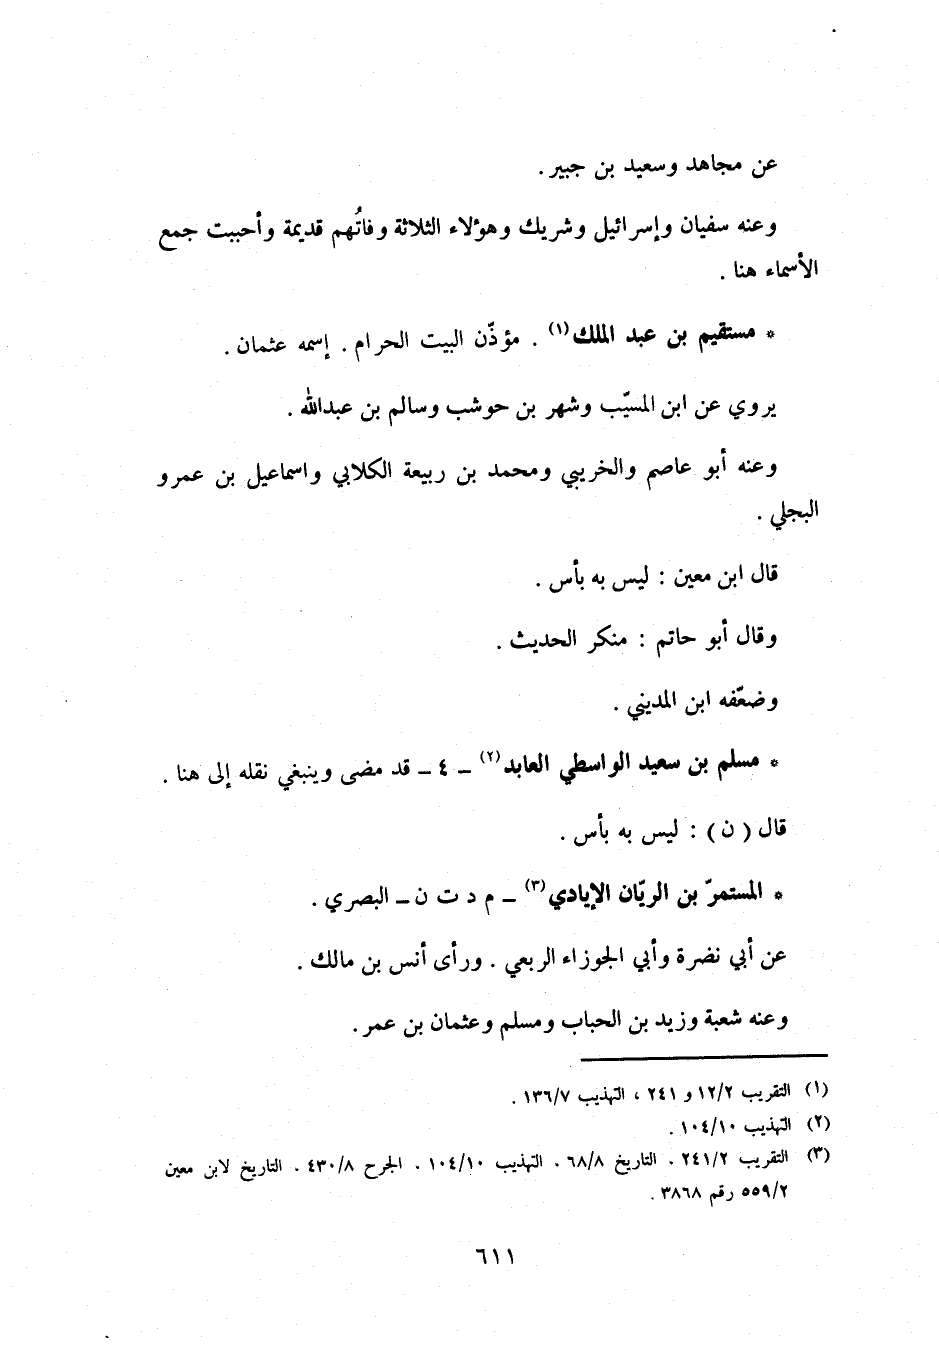 عن مجاهد وسعيد بن جبير .
وعنه سفيان وإسرائيل وشريك وهؤلاء الثلاثة وفاتُهم قديمة وأحببت جمع
الأسماء هنا .
* مستقيم بن عبد الملك(١) . مؤذّن البيت الحرام . إسمه عثمان .
يروي عن ابن المسيّب وشهر بن حوشب وسالم بن عبدالله .
وعنه أبو عاصم والخريبي ومحمد بن ربيعة الكلابي واسماعيل بن عمرو
البجلي .
قال ابن معين : ليس به بأس .
وقال أبو حاتم : منكر الحديث .
وضعّفه ابن المديني .
* مسلم بن سعيد الواسطي العابد(٢) ــ ٤ ــ قد مضى وينبغي نقله إلى هنا .
قال ( ن ) : ليس به بأس .
* المستمرّ بن الريّان الإيادي(٣) ــ م د ت ن ــ البصري .
عن أبي نضرة وأبي الجوزاء الربعي . ورأى أنس بن مالك .
وعنه شعبة وزيد بن الحباب ومسلم وعثمان بن عمر .
(١) التقريب ١٢/٢ و ٢٤١ ، التهذيب ١٣٦/٧ .
(٢) التهذيب ١٠٤/١٠ .
(٣) التقريب ٢٤١/٢ . التاريخ ٦٨/٨ . التهذيب ١٠٤/١٠ . الجرح ٤٣٠/٨ . التاريخ لابن معين
٥٥٩/٢ رقم ٣٨٦٨ .
٦١١